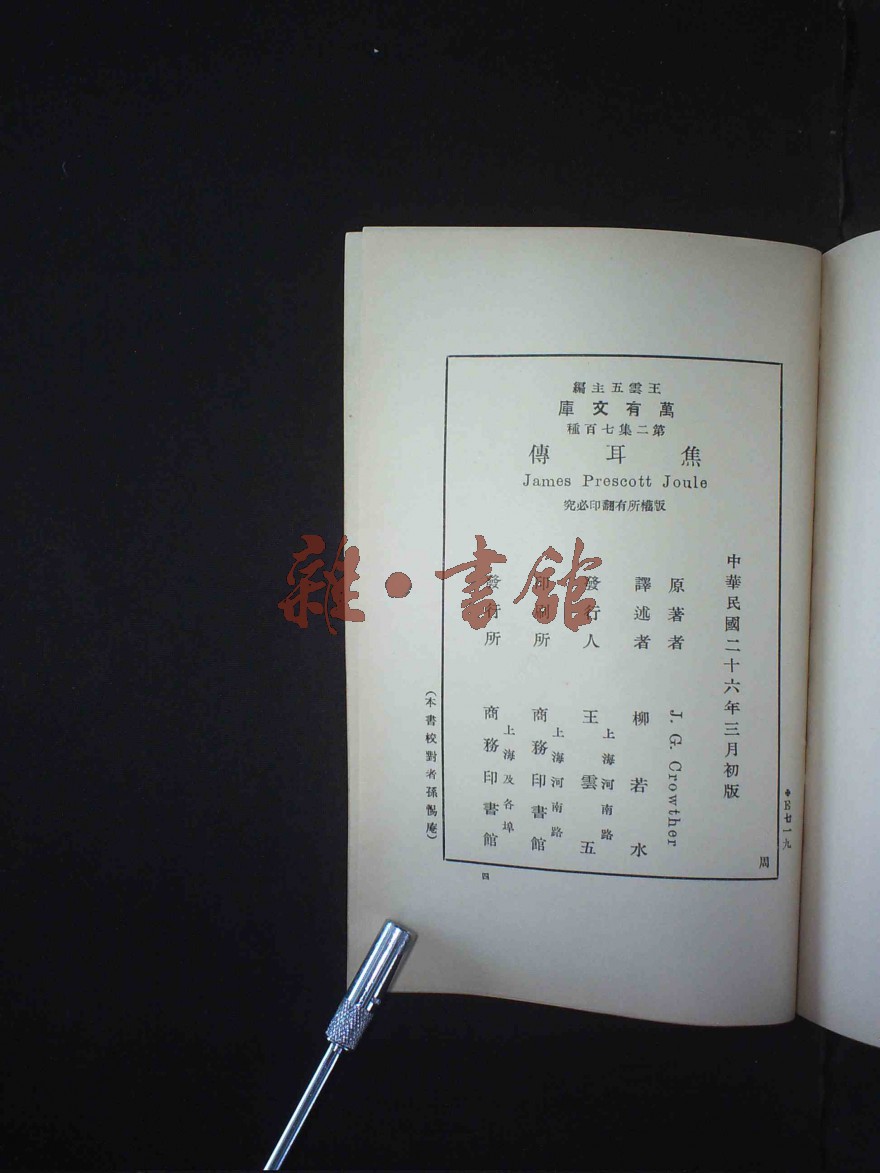 王雲五主編
萬有文庫
第二集七百種
焦耳傳
James Prescott Joule
版權所有翻印必究
中華民國二十六年三月初版
原著者 J. G. Crowther
譯述者 柳若水
發行人 王雲五
上海河南路
印刷所 商務印書館
上海河南路
發行所 商務印書館
上海及各埠
(本書校對者孫惕庵)
周
四
雜·書館